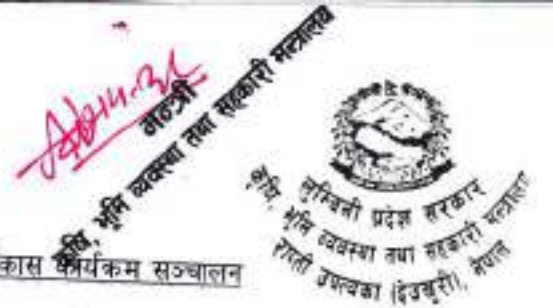 मन्त्री
कृषि, भूमि व्यवस्था तथा सहकारी मन्त्रालय
लुम्बिनी प्रदेश सरकार
कृषि, भूमि व्यवस्था तथा सहकारी मन्त्रालय
राप्ती उपत्यका (देउखुरी), नेपाल
कास कार्यक्रम सञ्चालन